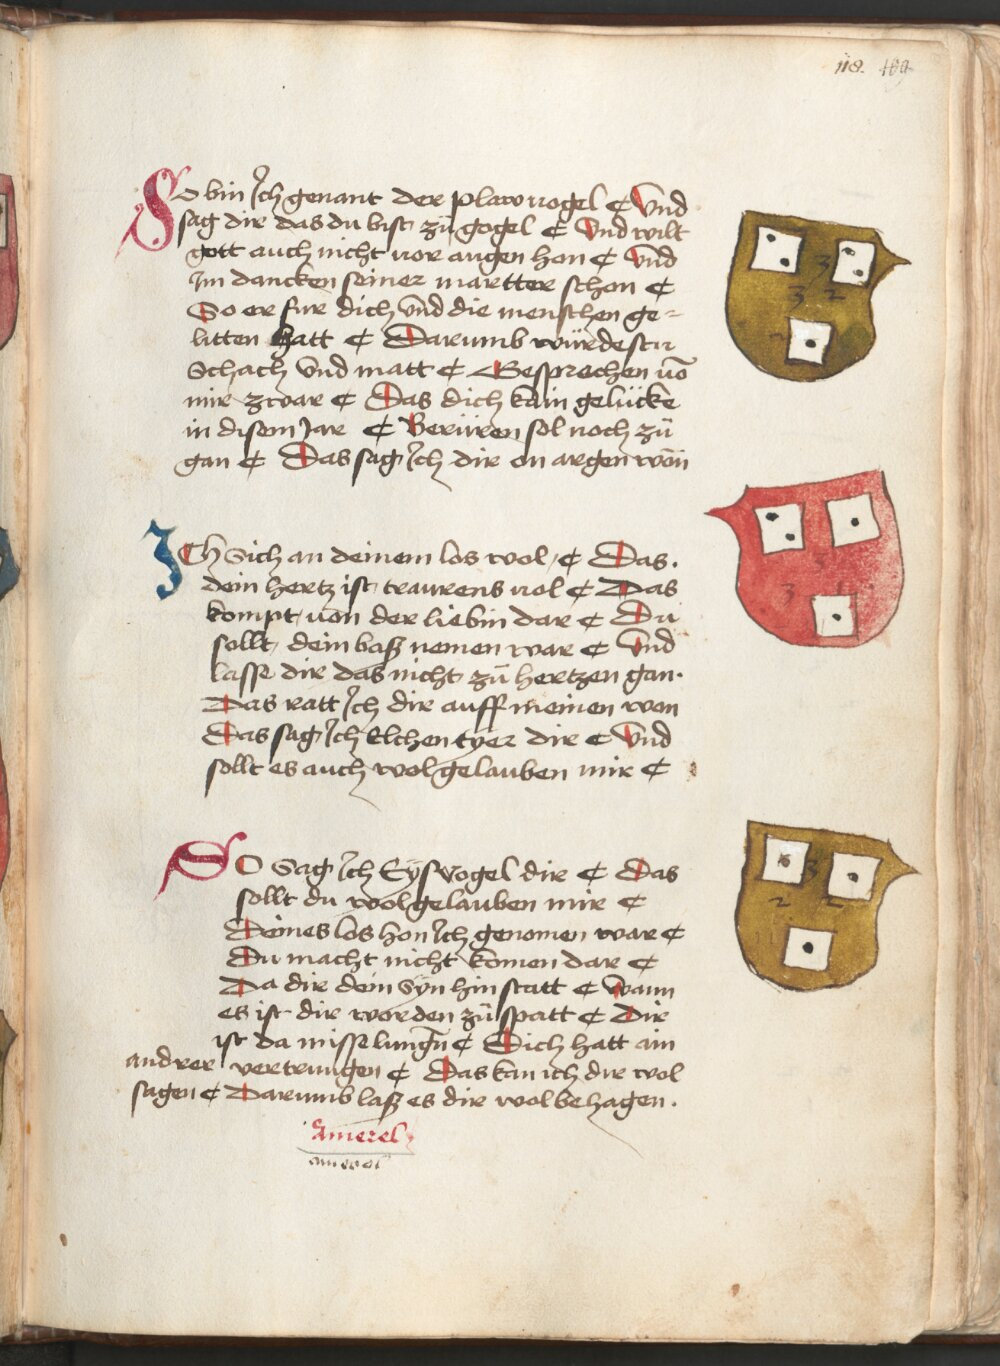 118. 109
So bin Ich genant der plaw uogel ¢ Vnd
sag dir das du bist zů gogel ¢ Vnd wilt
gott auch nicht uor augen hon ¢ Vnd
Im dancken seiner martter schon ¢
So er fur dich vnd die menschen ge=
litten hatt ¢ Darumb würdestu
Schach vnd matt ¢ Gesprochen uō
mir zwar ¢ Das dich kain gelücke
in disem Jar ¢ Berüren sol noch zů
gan ¢ Das sag Ich dir on argen won
3 2
3
Ich Sich an deinem los wol ¢ Das
dein hertz ist traurens uol ¢ Das
kompt uon der liebin dar ¢ Du
sollt dein bas nemen war ¢ Vnd
lasse dir das nicht zů hertzen gan.
Das ratt Ich dir auff meinen won
Das sag Ich Elchentyer dir ¢ Vnd
sollt es auch wol gelauben mir ¢
3 1
So Sag Ich Eysvogel dir ¢ Das
sollt du wol gelauben mir ¢
Deines los hon Ich genomen war ¢
Du macht nicht komen dar ¢
Da dir dein Syn hin statt ¢ Wann
es ist dir worden zů spatt ¢ Dir
ist da misselungen ¢ Dich hatt ain
andrer vertrungen ¢ Das kan ich dir wol
sagen ¢ Darumb lasz es dir wol behagen.
3
2 2
Amerel
amerel